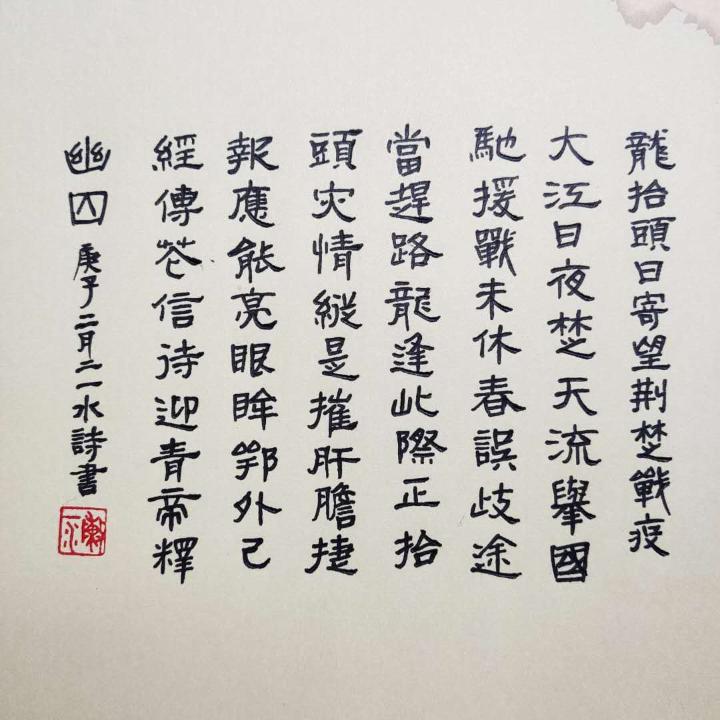 龍抬頭日寄望荆楚戰疫
大江日夜楚天流舉國
馳援戰未休春誤歧途
當趕路龍逢此際正抬
頭灾情縱是摧肝膽捷
報應能亮眼眸鄂外已
經傳花信待迎青帝釋
幽囚
庚子二月二一水詩書